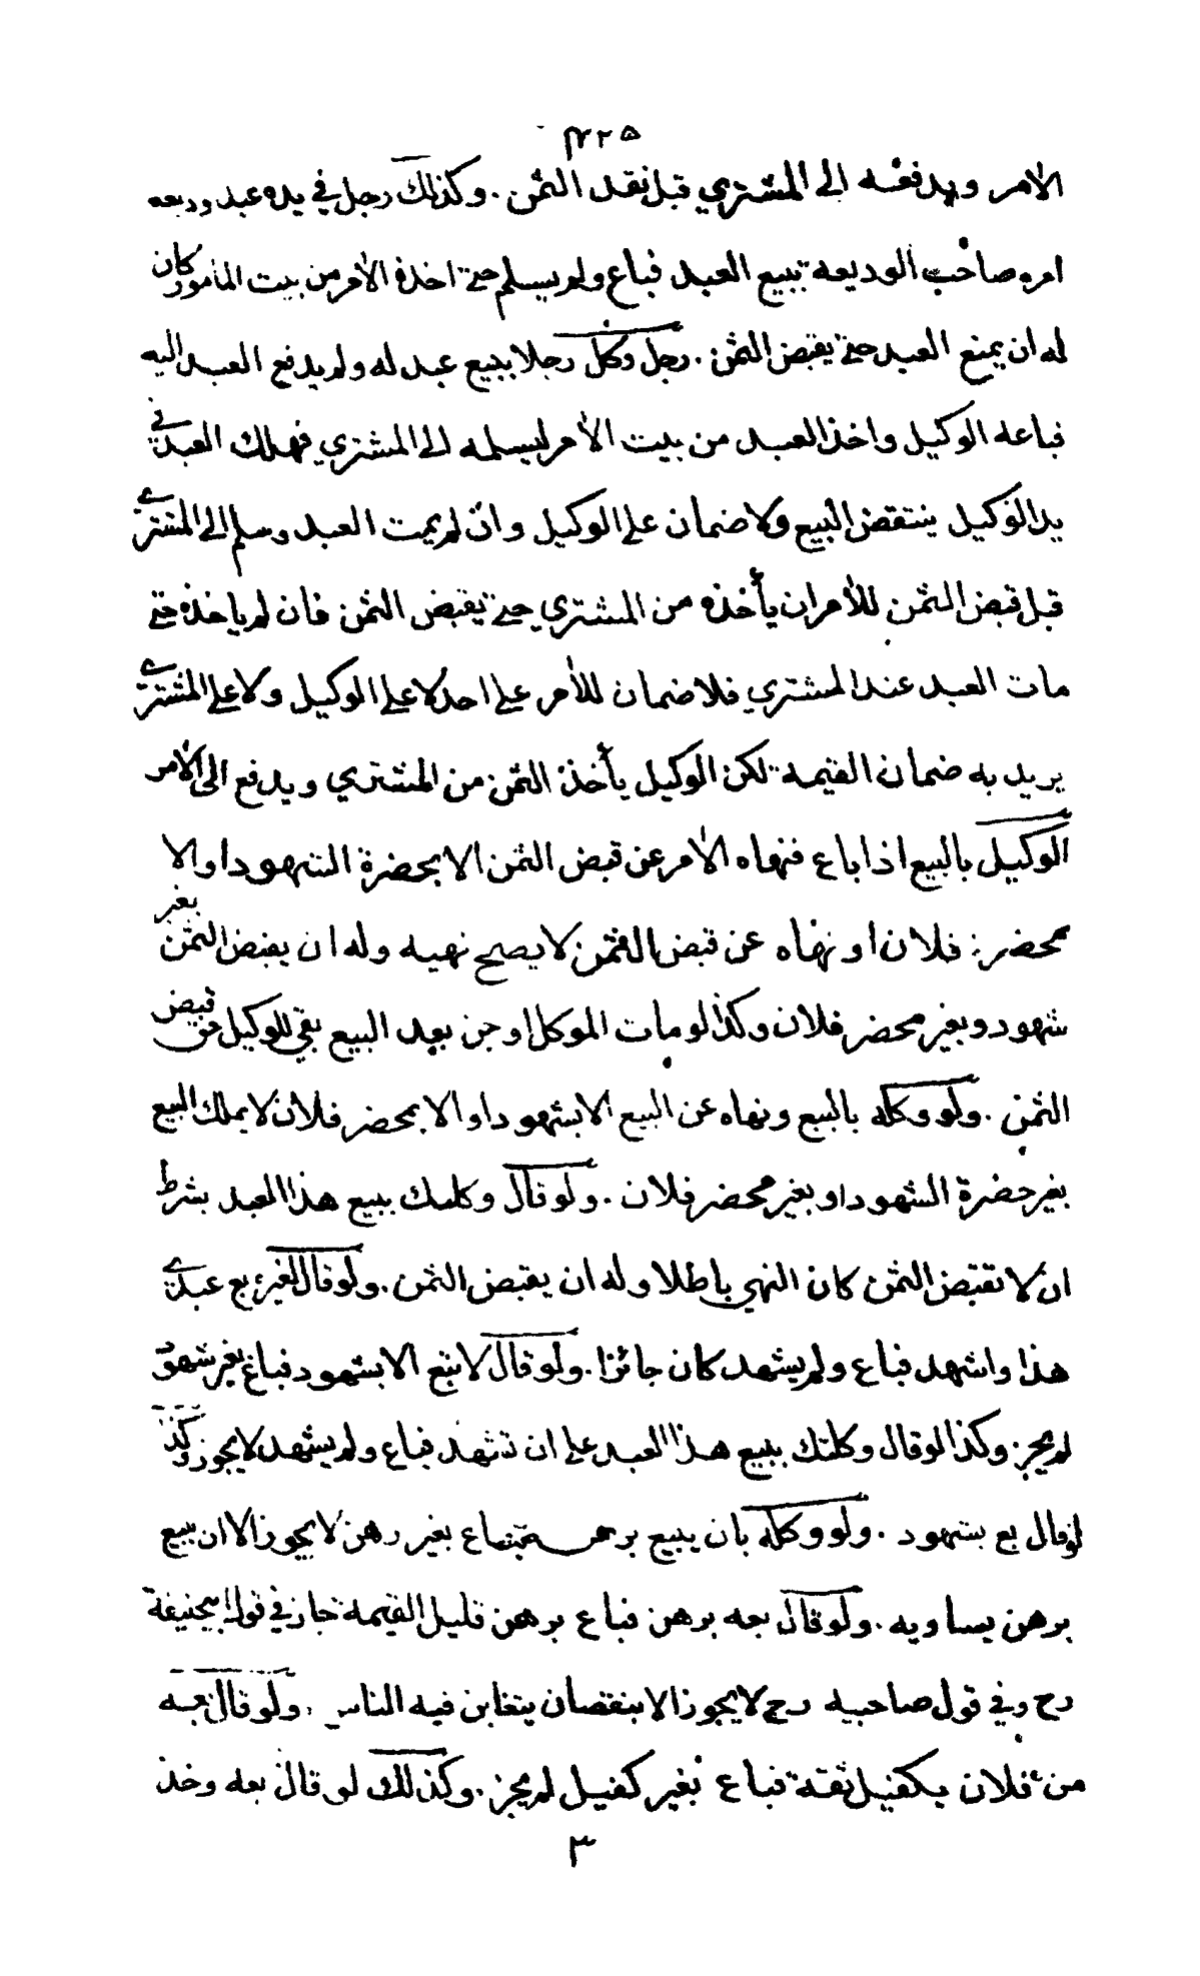 ٤٢٢٥
الآمر ويدفعه الى المشتري قبل نقد الثمن. وكذلك رجل في يده عبد وديعه
امره صاحب الوديعة ببيع العبد فباع ولم يسلم حتى اخذه الآمر من بيت المأمور كان
له ان يمنع العبد حتى يقبض الثمن. رجل وكل رجلا ببيع عبد له ولم يدفع العبد اليه
فباعه الوكيل واخذ العبد من بيت الآمر ليسلمه الى المشتري فهلك العبد في
يد الوكيل ينتقض البيع ولا ضمان على الوكيل وان لم يمت العبد وسلم الى المشتري
قبل قبض الثمن للآمر ان يأخذه من المشتري حتى يقبض الثمن فان لم ياخذه حتى
مات العبد عند المشتري فلا ضمان للآمر على احد لا على الوكيل ولا على المشتري
يريد به ضمان القيمة لكن الوكيل يأخذ الثمن من المشتري ويدفع الى الآمر
الوكيل بالبيع اذا باع فنهاه الآمر عن قبض الثمن الا بحضرة الشهود او الا
بمحضر فلان او نهاه عن قبض الثمن لا يصح نهيه وله ان يقبض الثمن بغير
شهود وبغير محضر فلان وكذا لو مات الموكل او جن بعد البيع بقي للوكيل حق قبض
الثمن. ولو وكله بالبيع ونهاه عن البيع الا بشهود او الا بمحضر فلان لا يملك البيع
بغير حضرة الشهود او بغير محضر فلان. ولو قال وكلتك ببيع هذا العبد بشرط
ان لا تقبض الثمن كان النهي باطلا وله ان يقبض الثمن. ولو قال لغيره بع عبدي
هذا واشهد فباع ولم يشهد كان جائزا. ولو قال لا تبع الا بشهود فباع بغير شهود
لم يجز وكذا لو قال وكلتك ببيع هذا العبد على ان تشهد فباع ولم يشهد لا يجوز وكذا
لو قال بع بشهود. ولو وكله بان يبيع برهن فباع بغير رهن لا يجوز الا ان يبيع
برهن يساويه. ولو قال بعه برهن فباع برهن قليل القيمة جاز في قول ابي حنيفة
رح وفي قول صاحبيه رح لا يجوز الا بنقصان يتغابن فيه الناس. ولو قال بعه
من فلان بكفيل ثقة فباع بغير كفيل لم يجز. وكذلك لو قال بعه وخذ
٣